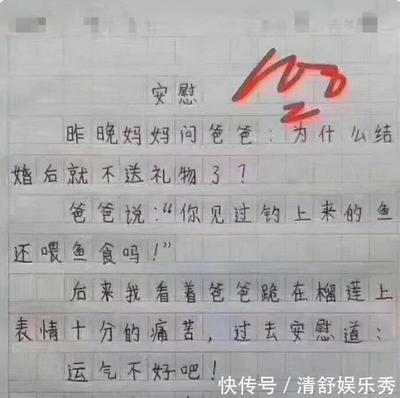 100
安慰
昨晚妈妈问爸爸:为什么结
婚后就不送礼物了?
爸爸说:“你见过钓上来的鱼
还喂鱼食吗!”
后来我看着爸爸跪在榴莲上
表情十分的痛苦,过去安慰道:
运气不好吧!
快传号/清舒娱乐秀